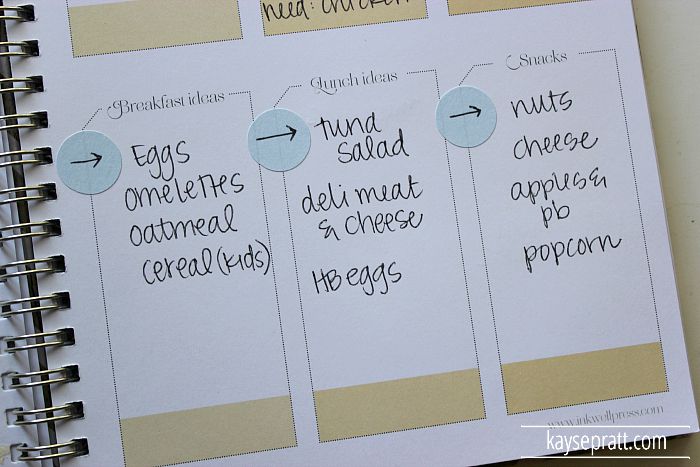 need: chicken
Breakfast ideas
Eggs
omelettes
oatmeal
cereal (kids)
Lunch ideas
tuna
salad
deli meat
& cheese
HB eggs
Snacks
nuts
cheese
apples &
pb
popcorn
www.inkwellpress.com
kaysepratt.com